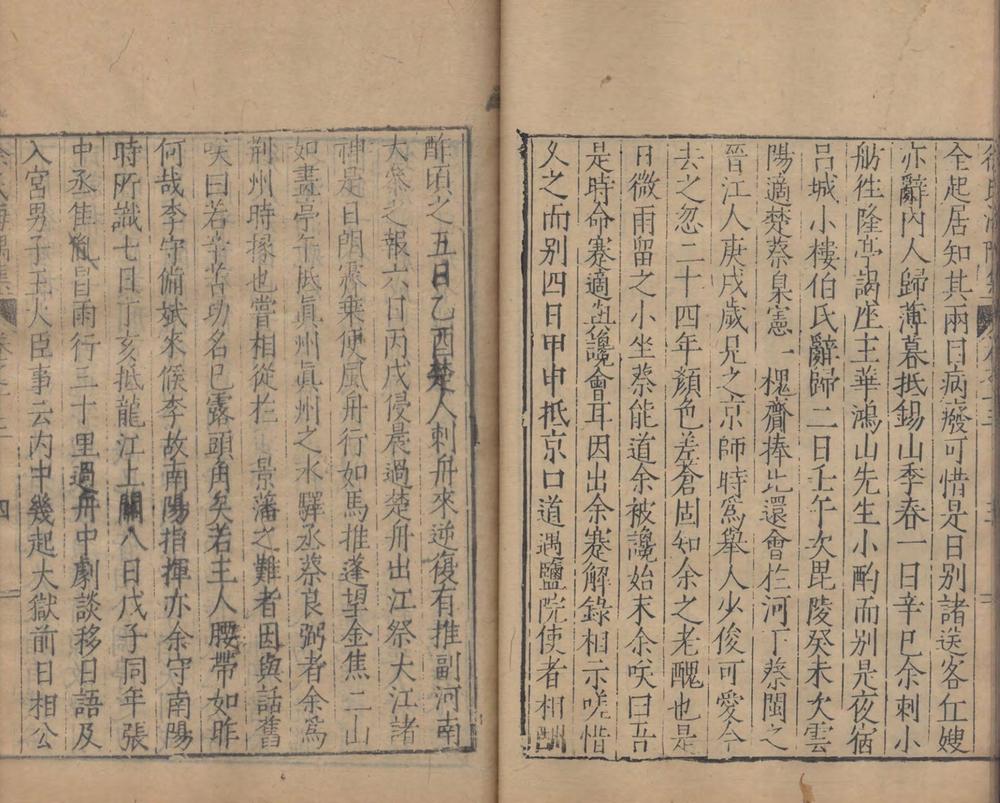 全起居知其兩日病癈可惜是日别諸送客丘嫂
亦辭内人歸薄暮抵錫山季春一日辛巳余刺小
舫徃隆亭謁座主華鴻山先生小酌而别是夜宿
吕城小樓伯氏辭歸二日壬午次毘陵癸未次雲
陽適楚蔡臬憲一槐齎捧北還會扵河丁蔡閩之
晉江人庚戌歲兄之京師時爲舉人少俊可愛今
去之忽二十四年顔色差蒼固如余之老醜也是
日微雨留之小坐蔡能道余被讒始末余咲曰吾
是時命蹇適與讒會耳因出余蹇解錄相示嗟惜
久之而别四日甲申抵京口道遇鹽院使者相酬
酢頃之五日乙酉楚人刺舟來逆復有推副河南
大叅之報六日丙戌侵晨過楚舟出江祭大江諸
神是日朗霽乗便風舟行如馬推蓬望金焦二山
如畫亭午抵真州真州之水驛丞蔡良弼者余爲
荆州時掾也嘗相從扵景藩之難者因與話舊
咲曰若辛苦功名已露頭角矣若主人腰帶如昨
何哉李守備斌來候李故南陽指揮亦余守南陽
時所識七日丁亥抵龍江上關八日戊子同年張
中丞佳胤冒雨行三十里過舟中劇談移日語及
入宫男子王大臣事云内中幾起大獄前日相公
卷之十三
四